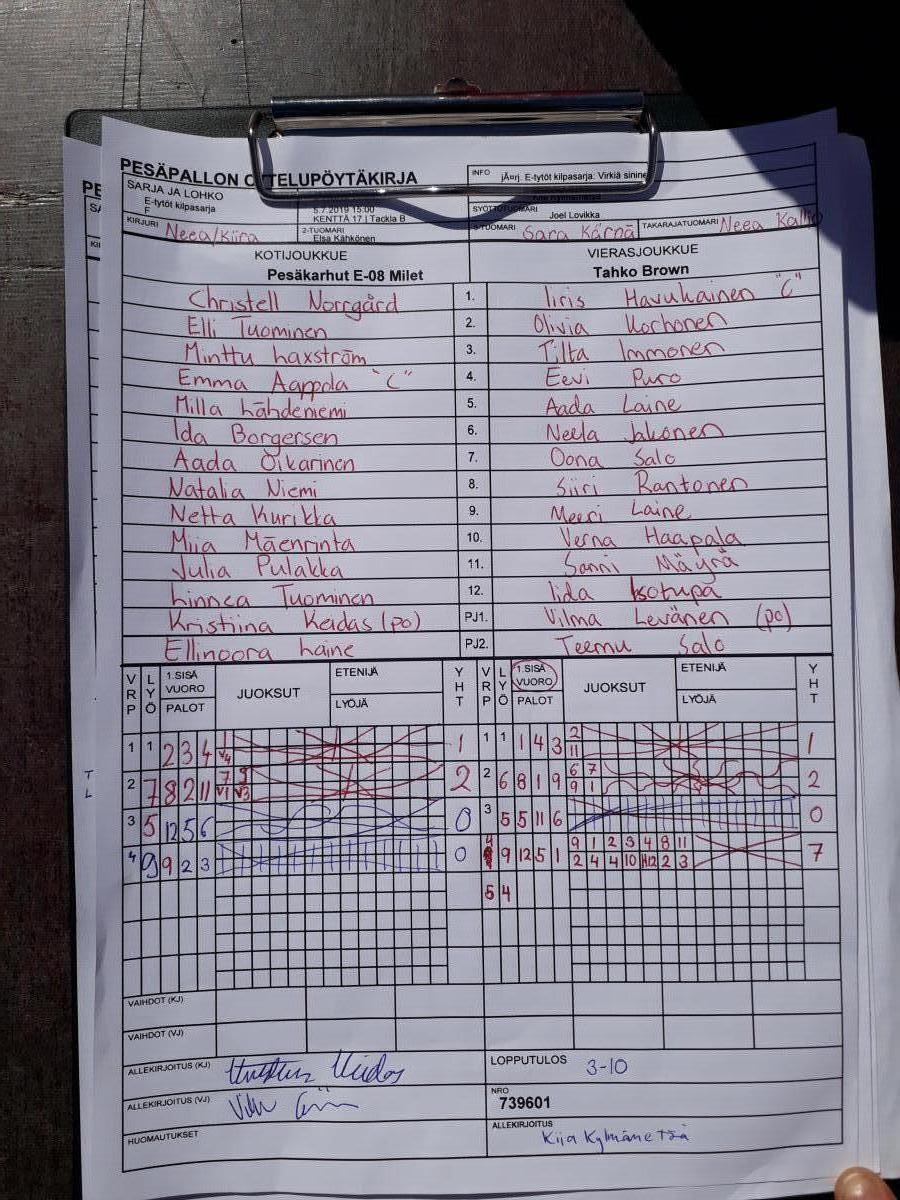 PESÄPALLON OTTELUPÖYTÄKIRJA
INFO jÃ¤rj. E-tytöt kilpasarja: Virkiä sinine
SARJA JA LOHKO
E-tytöt kilpasarja
F
5.7.2019 15:00
KENTTÄ 17 | Tackla B
SYÖTTÖTUOMARI Joel Lovikka
KIRJURI Neea/Kiira
2-TUOMARI Elsa Kähkönen
3-TUOMARI Sara Kärnä
TAKARAJATUOMARI Neea Kallio
KOTIJOUKKUE
VIERASJOUKKUE
Pesäkarhut E-08 Milet
Tahko Brown
Christell Norrgård 1. Iiris Havukainen "C"
Elli Tuominen 2. Olivia Korhonen
Minttu Laxström 3. Tilta Immonen
Emma Aappola "C" 4. Eevi Puro
Milla Lähdeniemi 5. Aada Laine
Ida Borgersen 6. Neela Jakonen
Aada Oikarinen 7. Oona Salo
Natalia Niemi 8. Siiri Rantonen
Netta Kurikka 9. Meeri Laine
Miia Mäenrinta 10. Verna Haapala
Julia Pulakka 11. Sanni Mäyrä
Linnea Tuominen 12. Iida Isotupa
Kristiina Keidas (po) PJ1. Vilma Levänen (po)
Ellinoora Laine PJ2. Teemu Salo
VRP LYÖ 1.SISÄ VUORO PALOT JUOKSUT ETENIJÄ LYÖJÄ YHT
VRP LYÖ 1.SISÄ VUORO PALOT JUOKSUT ETENIJÄ LYÖJÄ YHT
1 1 2 3 4 1 V4 1
1 1 1 4 3 2 11 1
2 7 8 2 11 7 8 V1 V3 2
2 6 8 1 9 6 7 9 1 2
3 5 12 5 6 0
3 5 5 11 6 0
4 9 9 2 3 0
4 9 12 5 1 9 1 2 3 4 8 11 7
2 4 4 10 12 2 3
5 4
T
L
VAIHDOT (KJ)
VAIHDOT (VJ)
ALLEKIRJOITUS (KJ)
LOPPUTULOS 3-10
ALLEKIRJOITUS (VJ)
NRO
739601
HUOMAUTUKSET
ALLEKIRJOITUS
Kiia Kylmänetsä